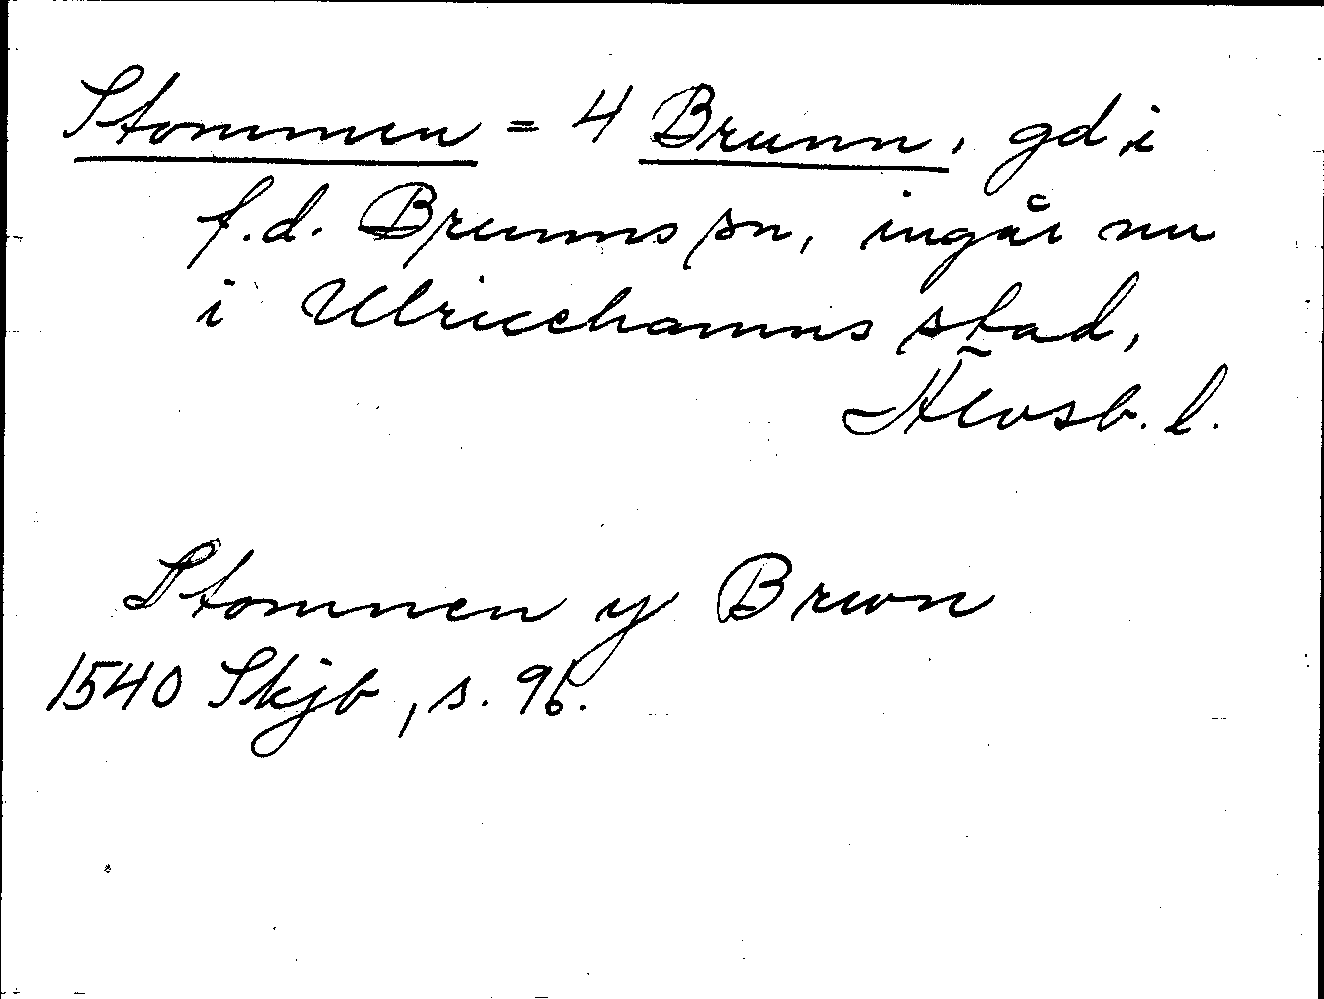 Stommen = 4 Brunn, gd i
f.d. Brunns sn, ingår nu
i Ulricehamns stad,
Älvsb. l.
Stomnen y Brwn
1540 Skjb, s. 96.